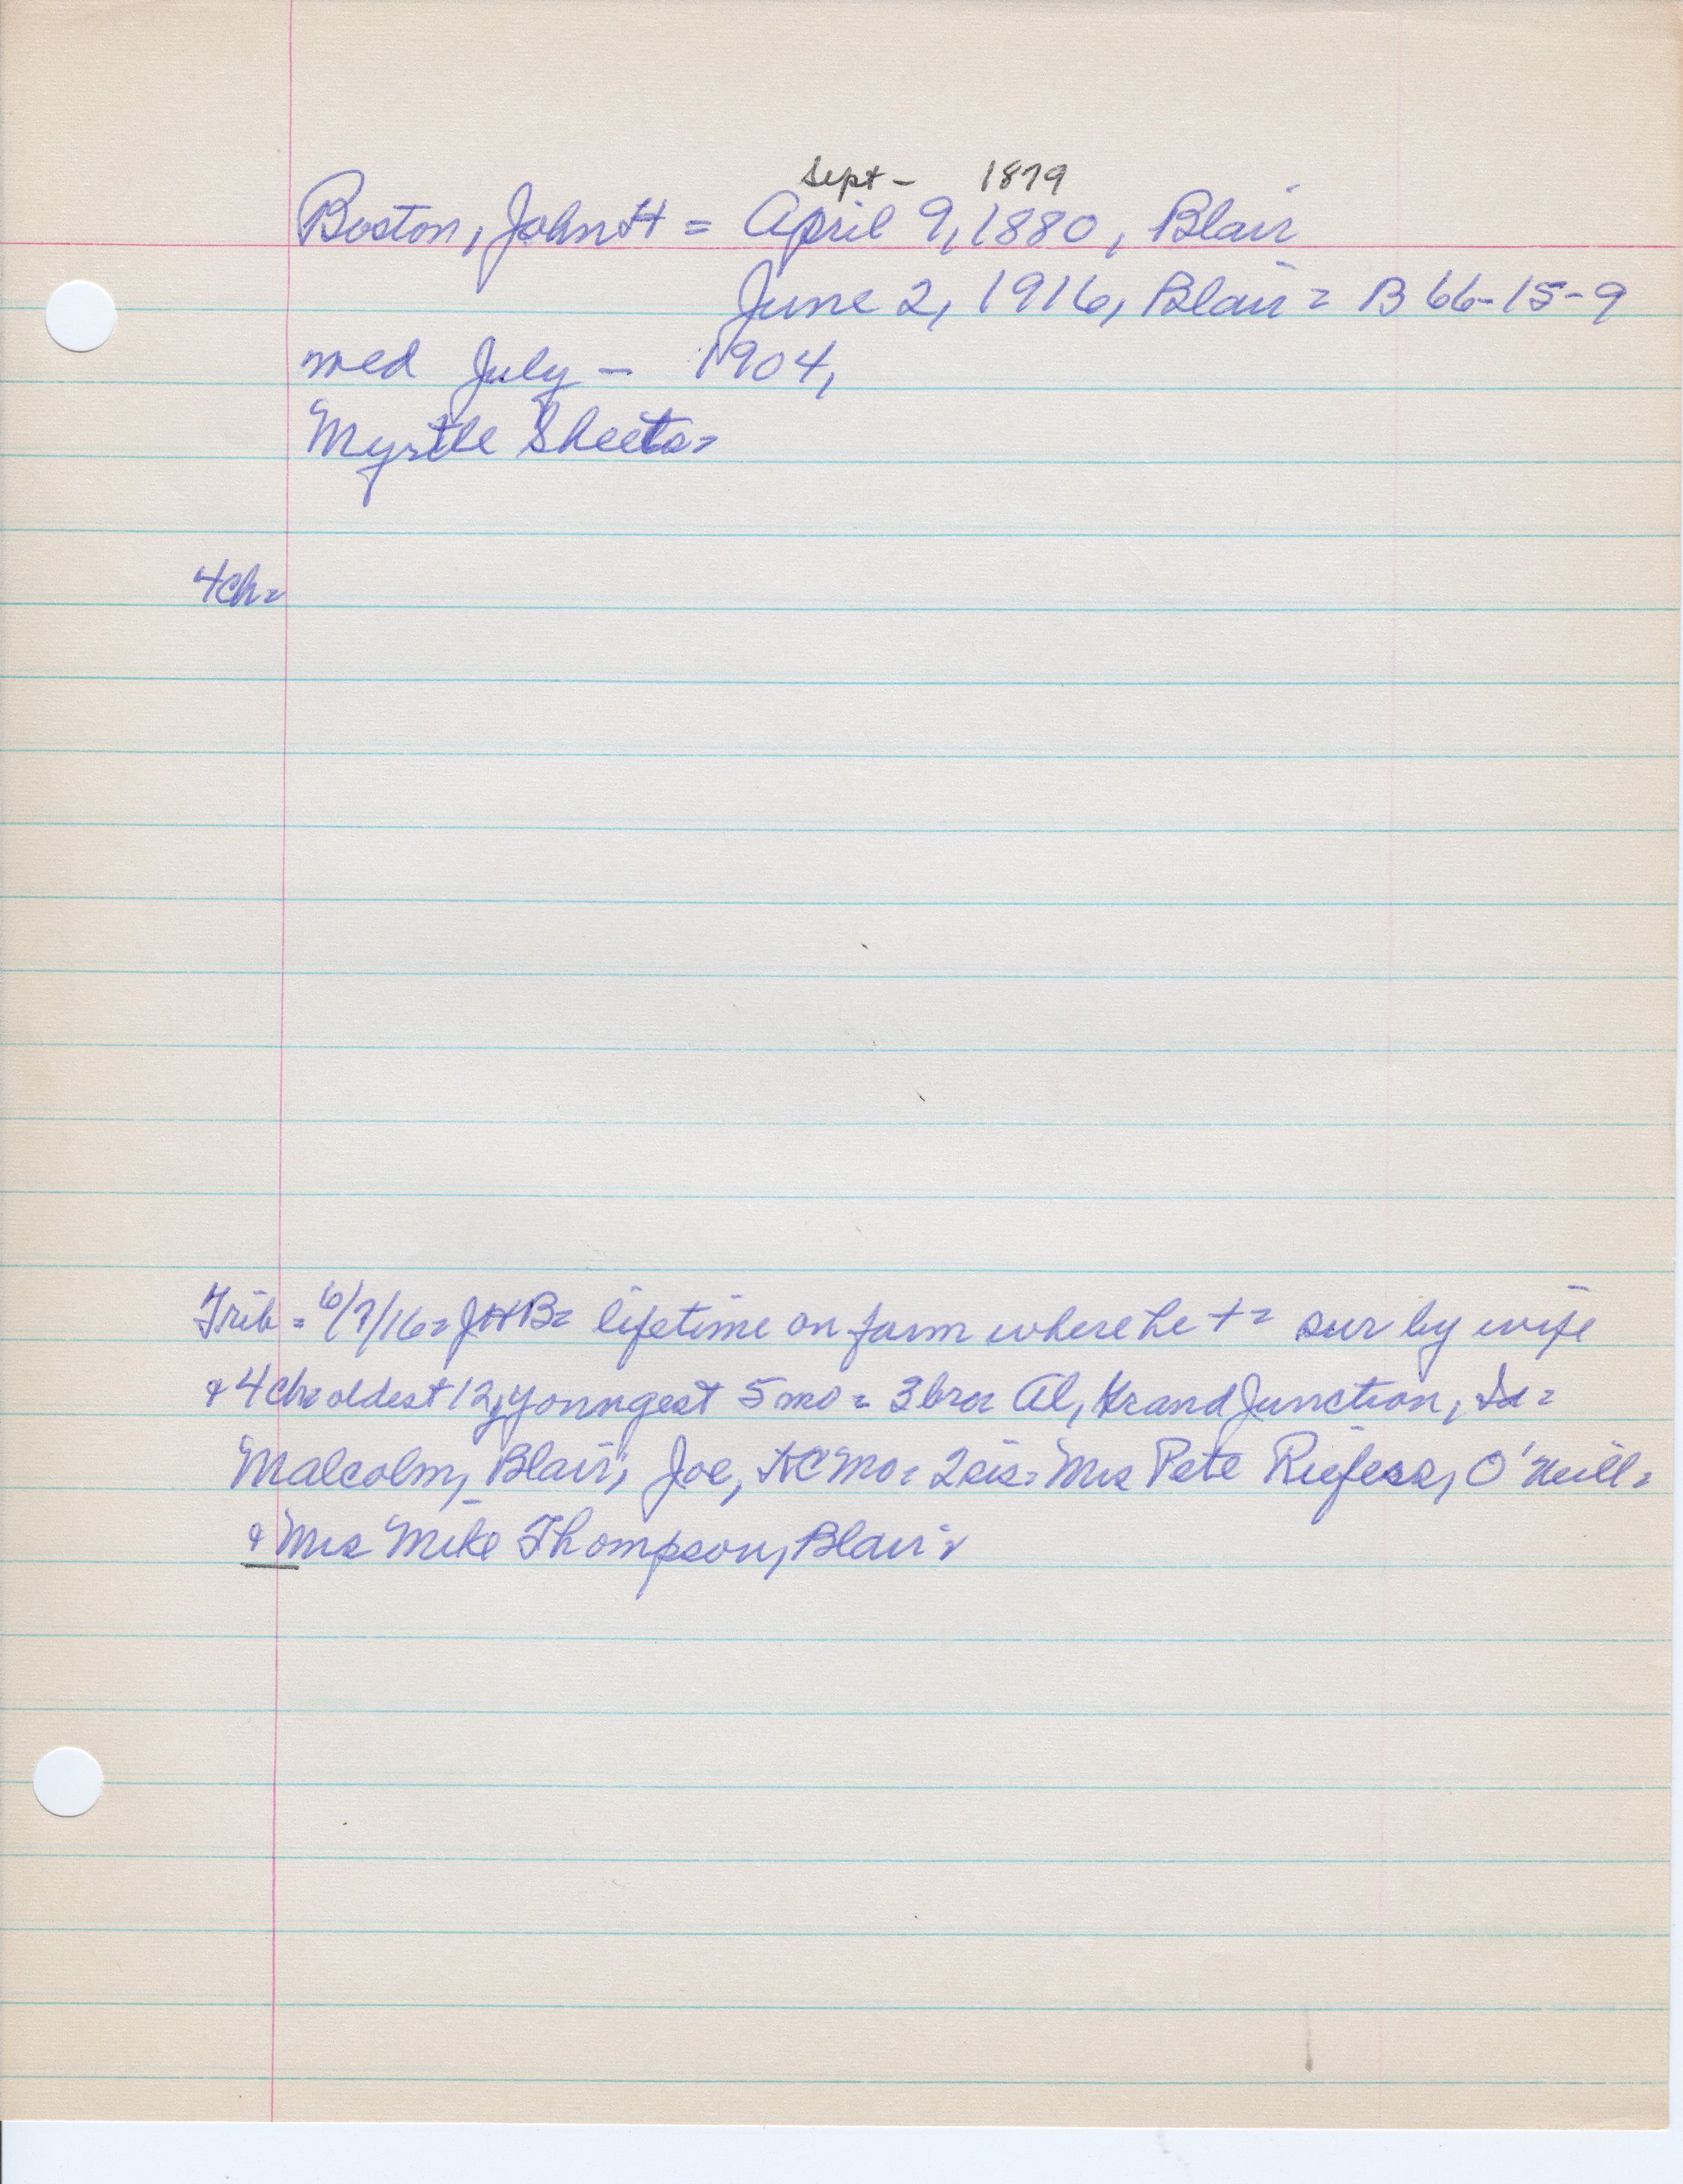 Sept - 1879
Boston, John H = April 9, 1880, Blair
June 2, 1916, Blair = B 66-15-9
med July - 1904,
Myrtle Sheets=
4ch=
Trib = 6/7/16= JHB= lifetime on farm where he += sur by wife
& 4ch= oldest 12, youngest 5 mo = 3 bro= Al, Grand Junction, Ia=
Malcolm, Blair, Joe, KC Mo= 2 sis= Mrs Pete O'Neill=
& Mrs Mike Thompson, Blair=